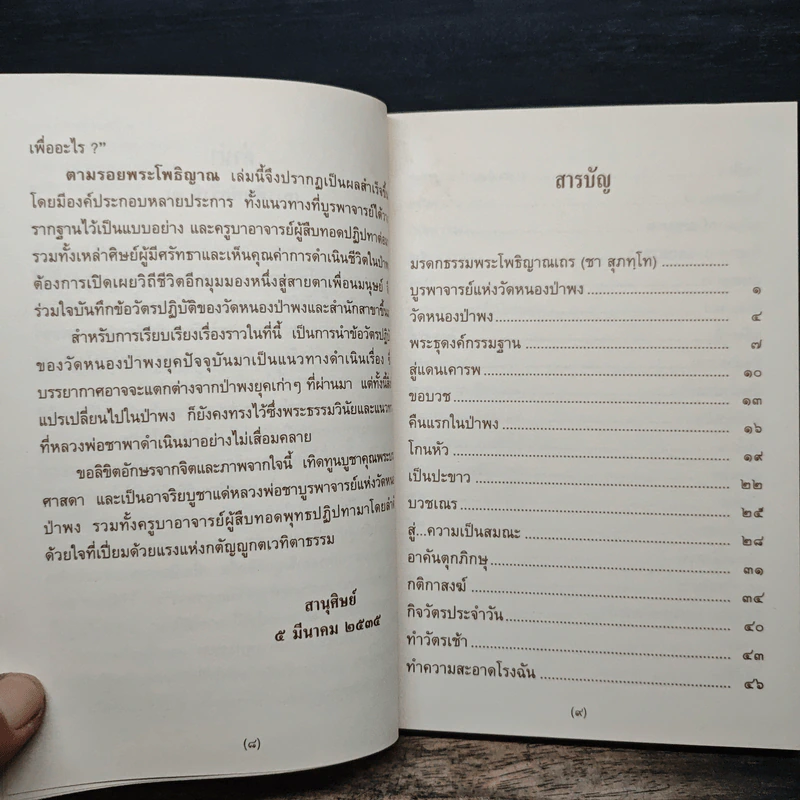 เพื่ออะไร ?"
ตามรอยพระโพธิญาณ เล่มนี้จึงปรากฏเป็นผลสำเร็จขึ้น
โดยมีองค์ประกอบหลายประการ ทั้งแนวทางที่บูรพาจารย์ได้วา
รากฐานไว้เป็นแบบอย่าง และครูบาอาจารย์ผู้สืบทอดปฏิปทาต่อม
รวมทั้งเหล่าศิษย์ผู้มีศรัทธาและเห็นคุณค่าการดำเนินชีวิตในป่าพ
ต้องการเปิดเผยวิถีชีวิตอีกมุมมองหนึ่งสู่สายตาเพื่อนมนุษย์
ร่วมใจบันทึกข้อวัตรปฏิบัติของวัดหนองป่าพงและสำนักสาขาขึ้น
สำหรับการเรียบเรียงเรื่องราวในที่นี้ เป็นการนำข้อวัตรปฏิบั
ของวัดหนองป่าพงยุคปัจจุบันมาเป็นแนวทางดำเนินเรื่อง
บรรยากาศอาจจะแตกต่างจากป่าพงยุคเก่าๆ ที่ผ่านมา แต่ทั้งนี้
แปรเปลี่ยนไปในป่าพง ก็ยังคงทรงไว้ซึ่งพระธรรมวินัยและแนวท
ที่หลวงพ่อชาพาดำเนินมาอย่างไม่เสื่อมคลาย
ขอลิขิตอักษรจากจิตและภาพจากใจนี้ เทิดทูนบูชาคุณพระบร
ศาสดา และเป็นอาจริยบูชาแด่หลวงพ่อชาบูรพาจารย์แห่งวัดหน
ป่าพง รวมทั้งครูบาอาจารย์ผู้สืบทอดพุทธปฏิปทามาโดยลำ
ด้วยใจที่เปี่ยมด้วยแรงแห่งกตัญญูกตเวทิตาธรรม
สานุศิษย์
๕ มีนาคม ๒๕๓๕
(๘)
สารบัญ
มรดกธรรมพระโพธิญาณเถร (ชา สุภทฺโท) ..................
บูรพาจารย์แห่งวัดหนองป่าพง .................................... ๑
วัดหนองป่าพง ........................................................ ๔
พระธุดงค์กรรมฐาน .................................................. ๗
สู่แดนเคารพ ........................................................... ๑๐
ขอบวช .................................................................. ๑๓
คืนแรกในป่าพง ....................................................... ๑๖
โกนหัว ................................................................... ๑๙
เป็นปะขาว .............................................................. ๒๒
บวชเณร .................................................................. ๒๕
สู่...ความเป็นสมณะ .................................................. ๒๘
อาคันตุกภิกษุ .......................................................... ๓๑
กติกาสงฆ์ ............................................................... ๓๔
กิจวัตรประจำวัน ...................................................... ๔๐
ทำวัตรเช้า ............................................................... ๔๓
ทำความสะอาดโรงฉัน ............................................... ๔๖
(๙)